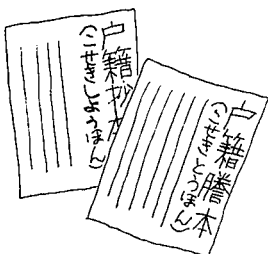 戸籍抄本
(こせきしょうほん)
戸籍謄本
(こせきとうほん)